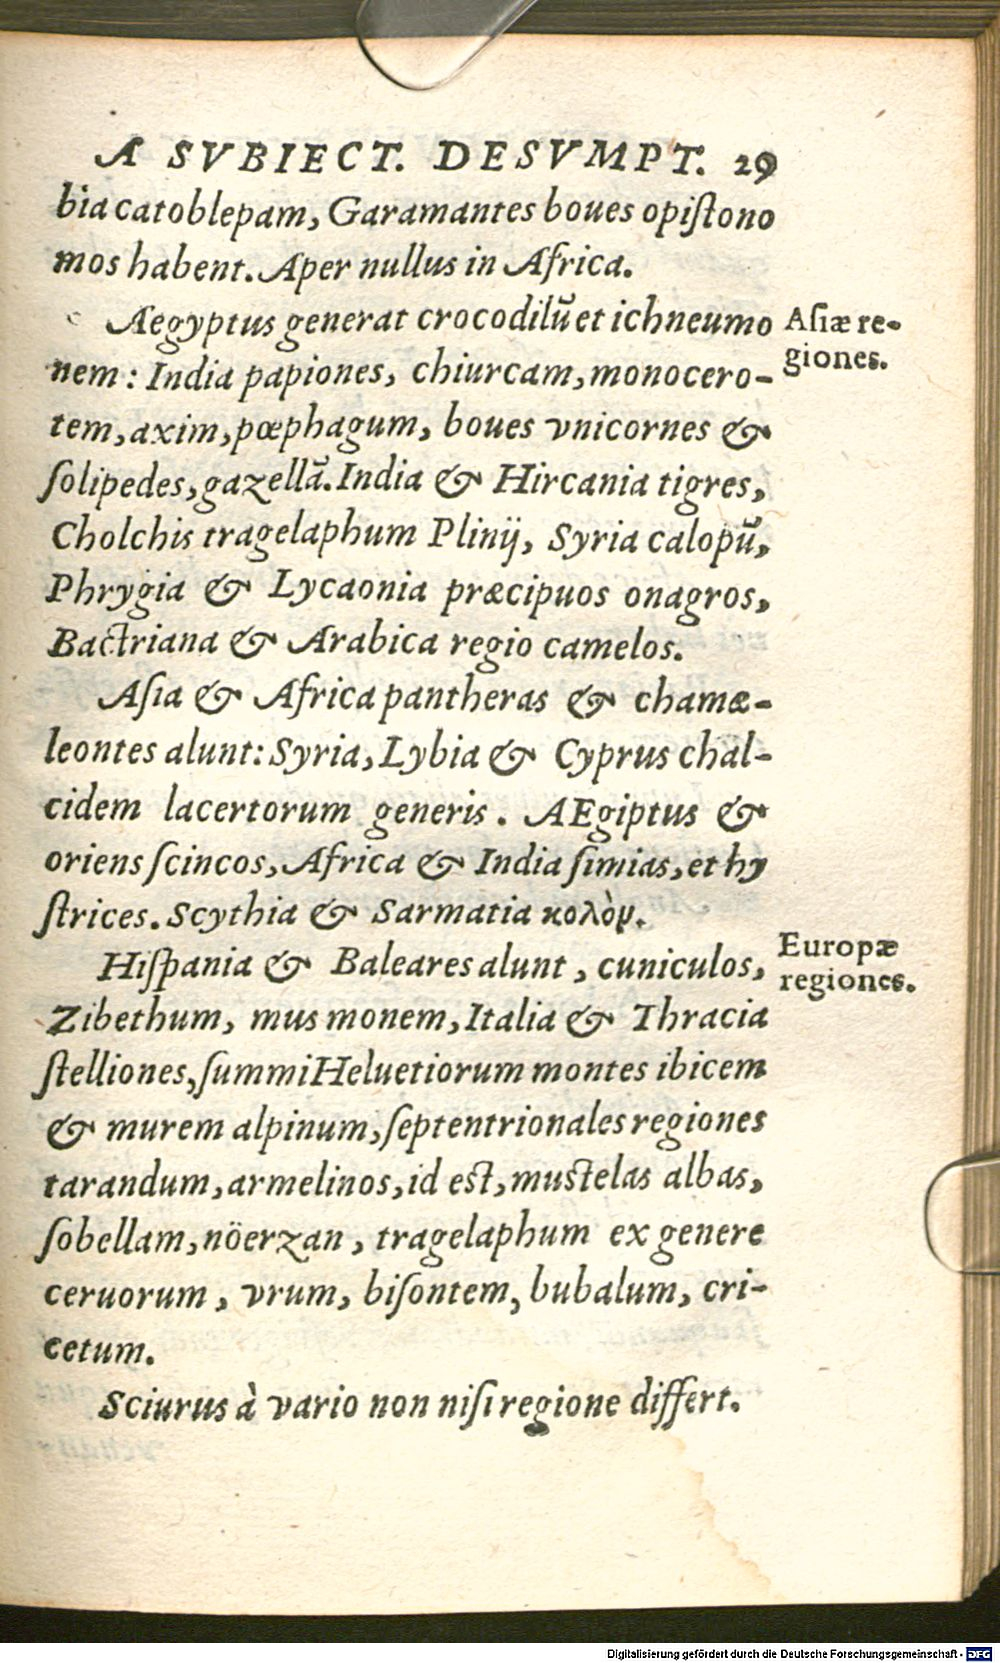 A SVBIECT. DESVMPT. 29
bia catoblepam, Garamantes boues opiſtono
mos habent. Aper nullus in Africa.
Aegyptus generat crocodilũ et ichneumo
nem: India papiones, chiurcam, monocero-
tem, axim, pœphagum, boues vnicornes &
ſolipedes, gazellã. India & Hircania tigres,
Cholchis tragelaphum Plinij, Syria calopũ,
Phrygia & Lycaonia præcipuos onagros,
Bactriana & Arabica regio camelos.
Aſia & Africa pantheras & chamæ-
leontes alunt: Syria, Lybia & Cyprus chal-
cidem lacertorum generis. AEgiptus &
oriens ſcincos, Africa & India ſimias, et hy
ſtrices. Scythia & Sarmatia κολὸμ.
Hiſpania & Baleares alunt, cuniculos,
Zibethum, mus monem, Italia & Thracia
ſtelliones, ſummi Heluetiorum montes ibicem
& murem alpinum, ſeptentrionales regiones
tarandum, armelinos, id eſt, muſtelas albas,
ſobellam, nöerzan, tragelaphum ex genere
ceruorum, vrum, biſontem, bubalum, cri-
cetum.
Sciurus à vario non niſi regione differt.
Aſiæ re-
giones.
Europæ
regiones.
Digitalisierung gefördert durch die Deutsche Forschungsgemeinschaft - DFG